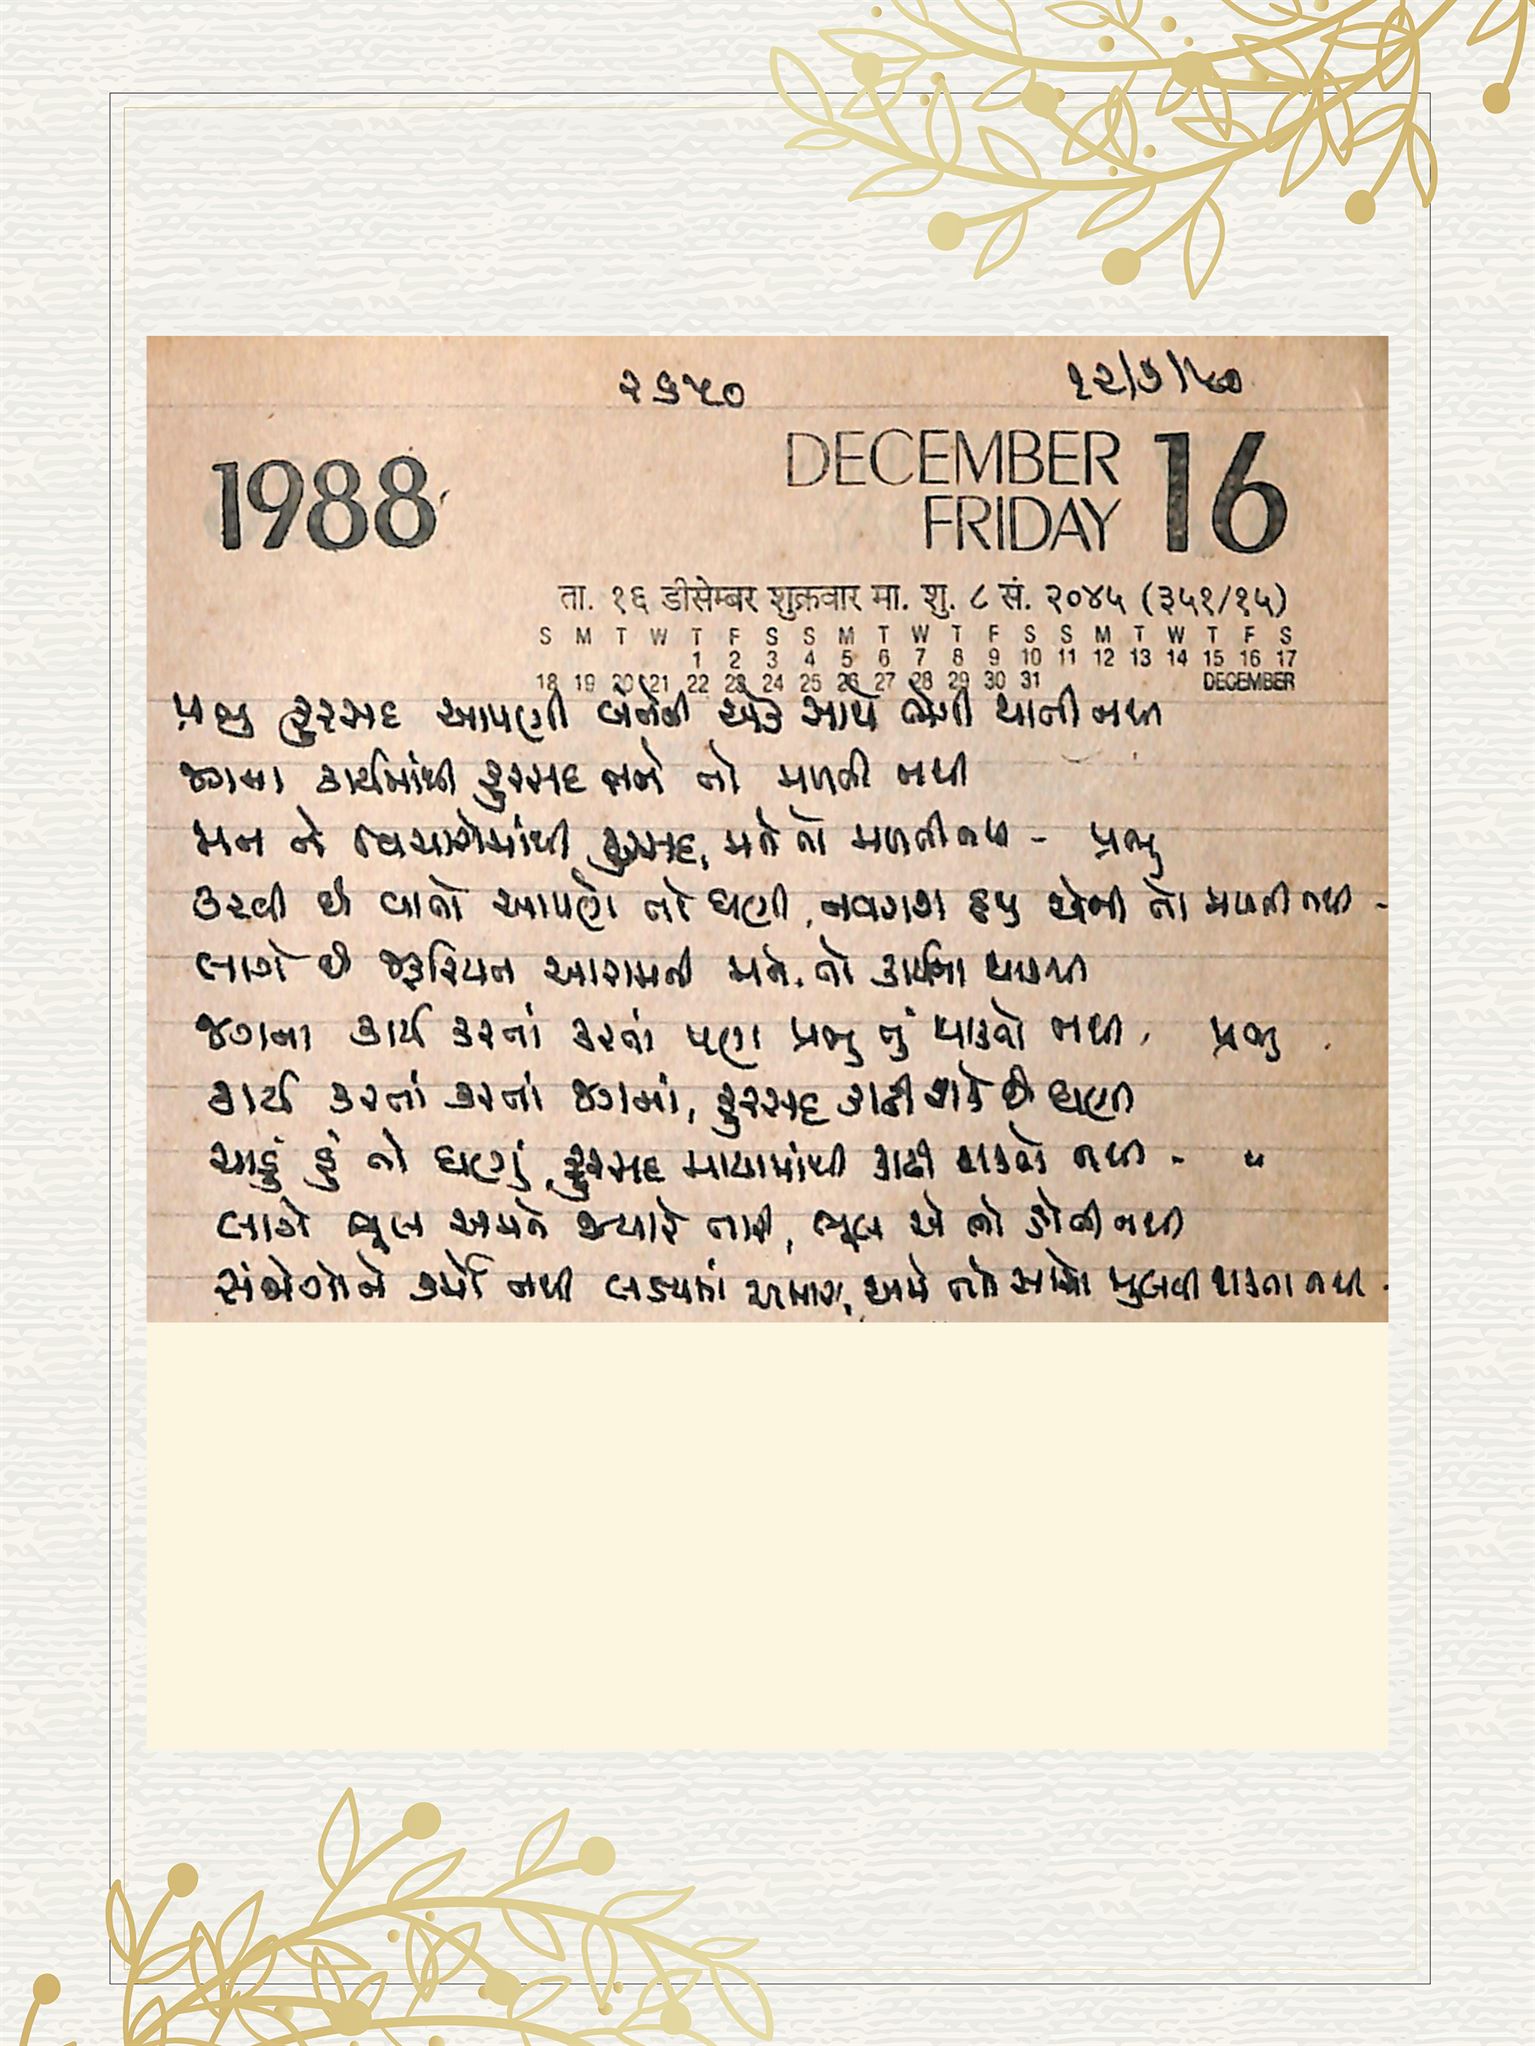 ૨૬૫૦ ૧૨/૭/૯૦
1988 DECEMBER 16
FRIDAY
ता. १६ डीसेम्बर शुक्रवार मा. शु. ८ सं. २०४५ (३५१/१५)
S M T W T F S S M T W T F S S M T W T F S
1 2 3 4 5 6 7 8 9 10 11 12 13 14 15 16 17
18 19 20 21 22 23 24 25 26 27 28 29 30 31 DECEMBER
પ્રભુ ફુરસદ આપણી બંનેની એક સાથે ભેગી થાતી નથી
જગના કાર્યમાંથી ફુરસદ મને તો મળતી નથી
મન ને વિચારોમાંથી ફુરસદ, મને તો મળતી નથી - પ્રભુ
કરવી છે વાતો આપણે તો ઘણી, તો મળતી નથી -
લાગે છે જરૂરિયાત આરામની મને, તો કાર્યના થાકથી
જગના કાર્ય કરતાં કરતાં પણ પ્રભુ તું થાકતો નથી, પ્રભુ
કાર્ય કરતાં કરતાં જગમાં, ફુરસદ કાઢી શકે છે ઘણી
ચાહું હું તો ઘણું, ફુરસદ માયામાંથી કાઢી શકતો નથી - "
લાગે ભૂલ અમને જ્યારે તારી, ભૂલ એ તો કોની નથી
સંજોગોને નથી લક્ષ્યમાં અમારા, અમે તને સાચો મુલવી શકતા નથી